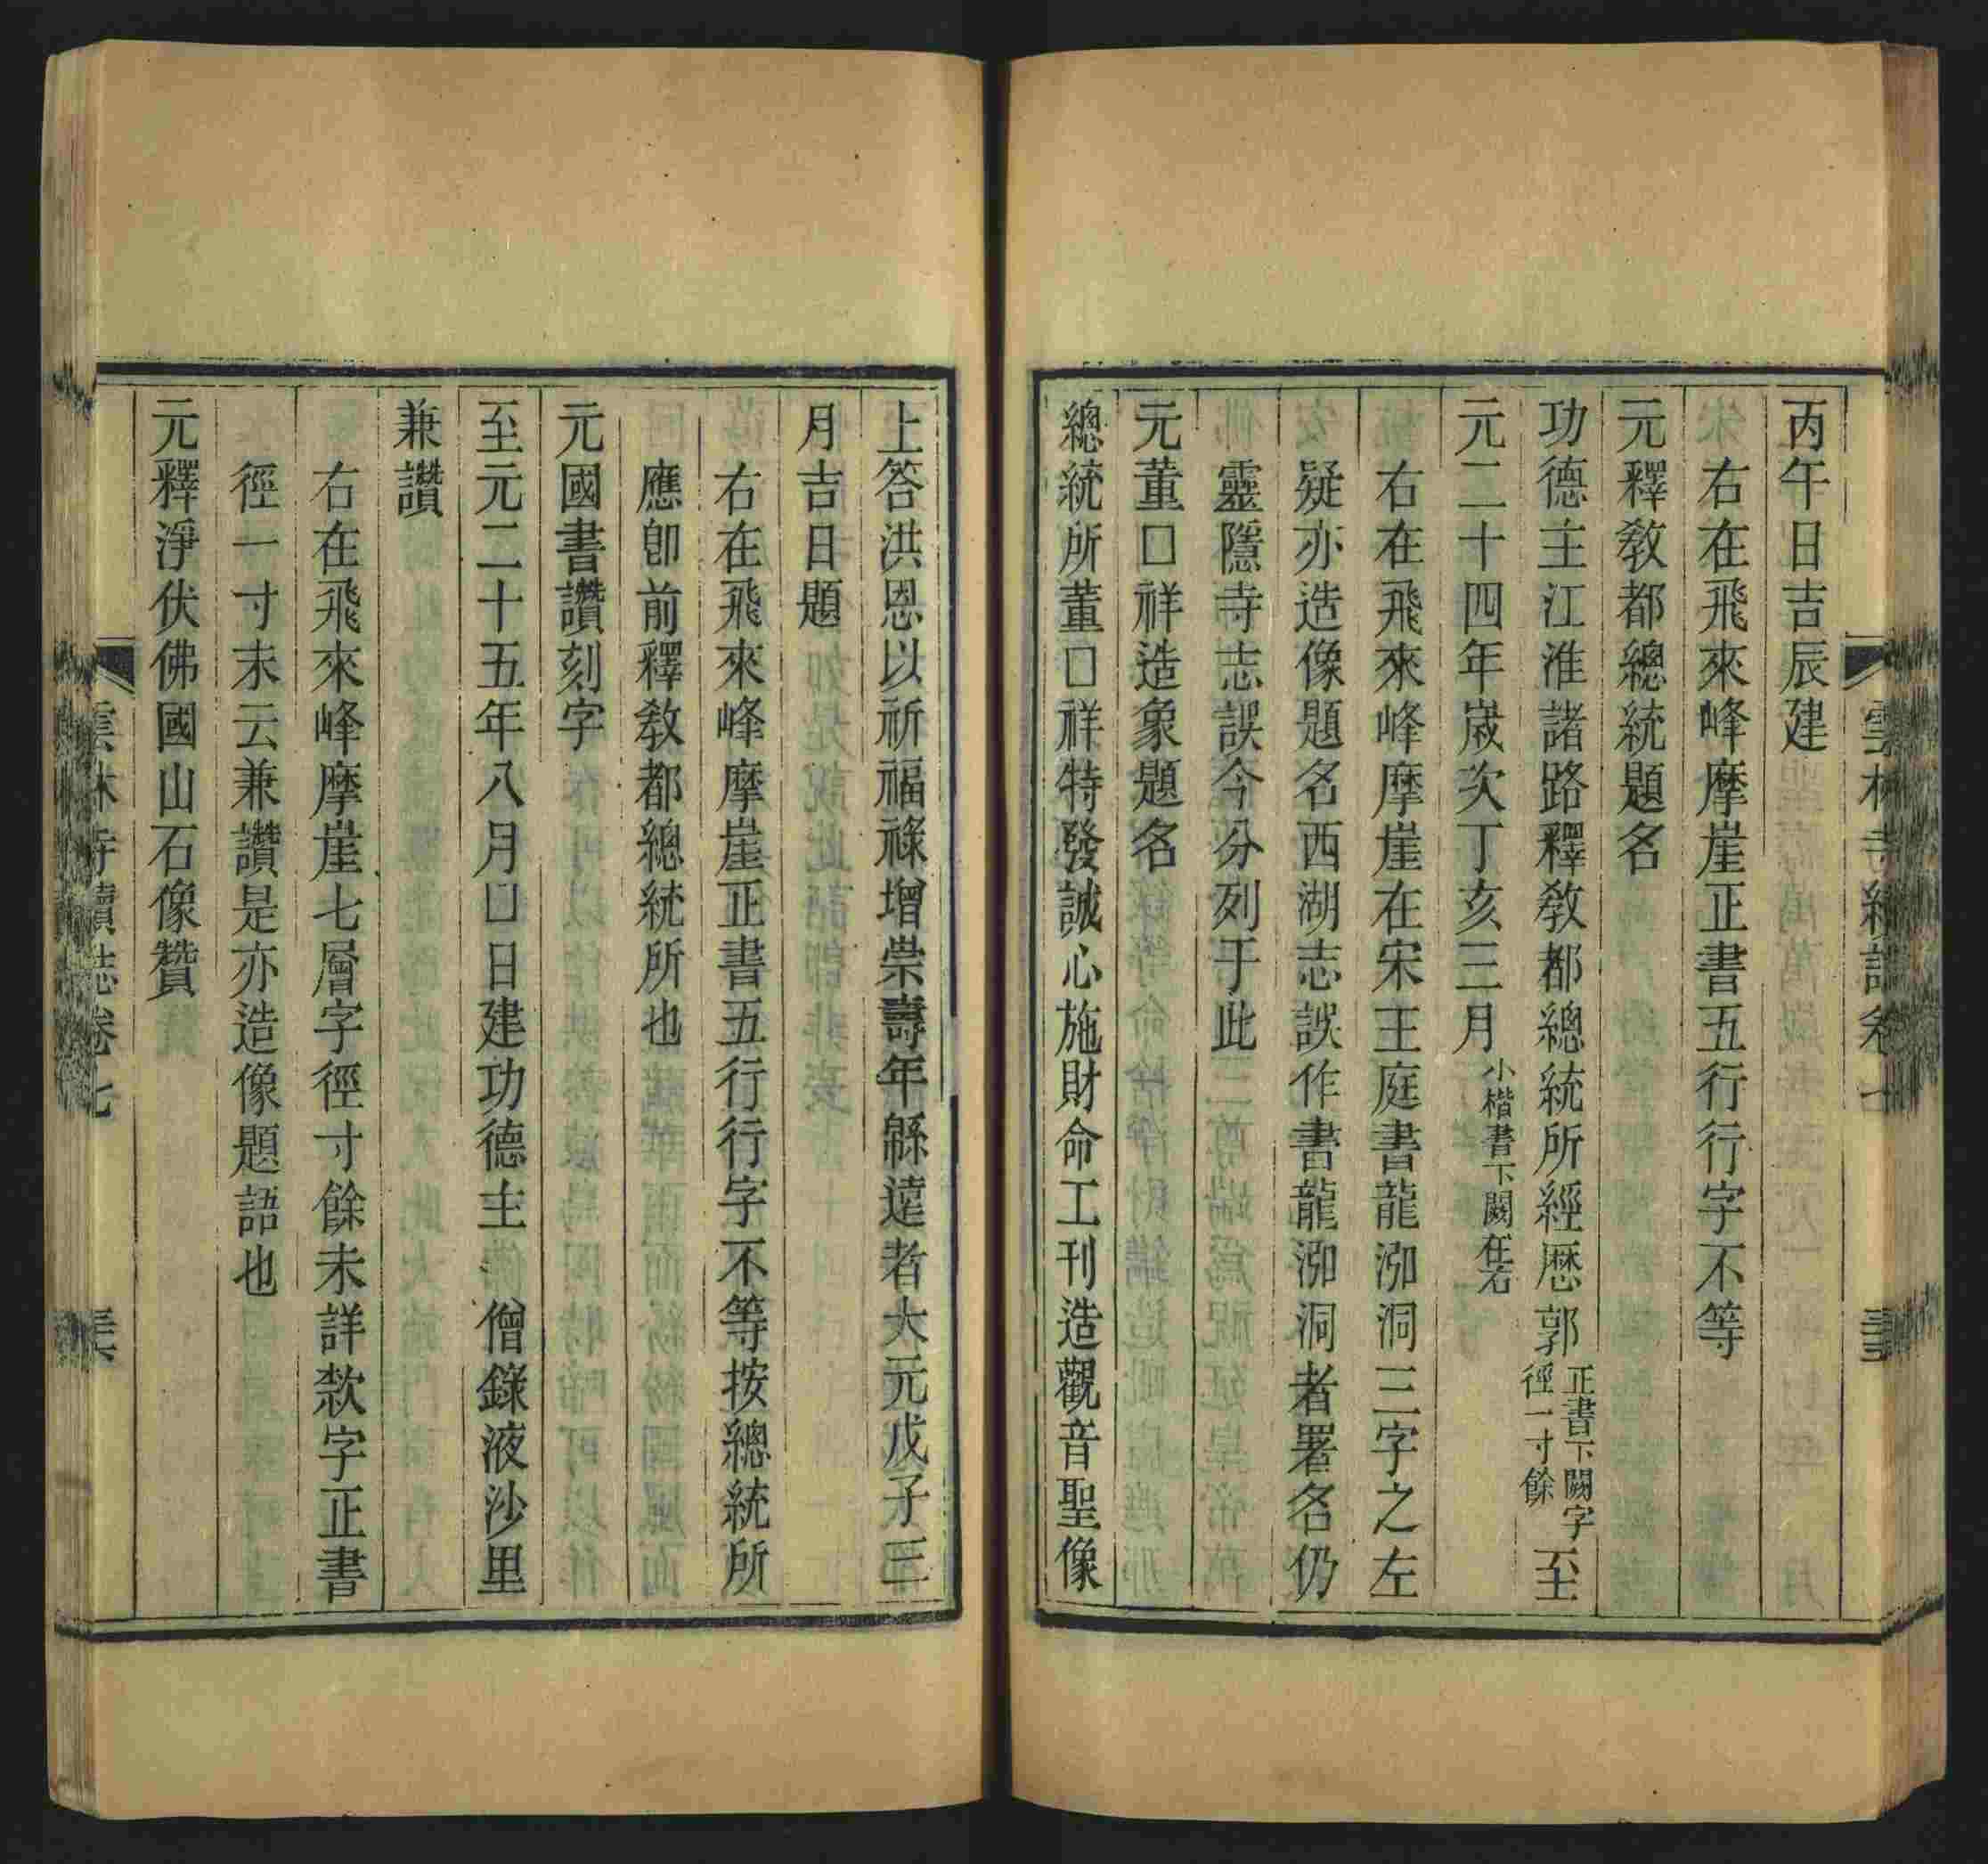 丙午日吉辰建
右在飛來峰摩崖正書五行行字不等
元釋教都總統題名
功德主江淮諸路釋教都總統所經歷郭正書下闕字徑一寸餘至
元二十四年歲次丁亥三月小楷書下闕在右
右在飛來峰摩崖在宋王庭書龍泓洞三字之左
疑亦造像題名西湖志誤作書龍泓洞者署名仍
靈隱寺志誤今分列于此
元董□祥造象題名
總統所董□祥特發誠心施財命工刊造觀音聖像
上答洪恩以祈福祿增崇壽年緜遠者大元戊子三
月吉日題
右在飛來峰摩崖正書五行行字不等按總統所
應卽前釋教都總統所也
元國書讚刻字
至元二十五年八月□日建功德主 僧錄液沙里
兼讚
右在飛來峰摩崖七層字徑寸餘未詳款字正書
徑一寸末云兼讚是亦造像題語也
元釋淨伏佛國山石像贊
雲林寺續誌卷七